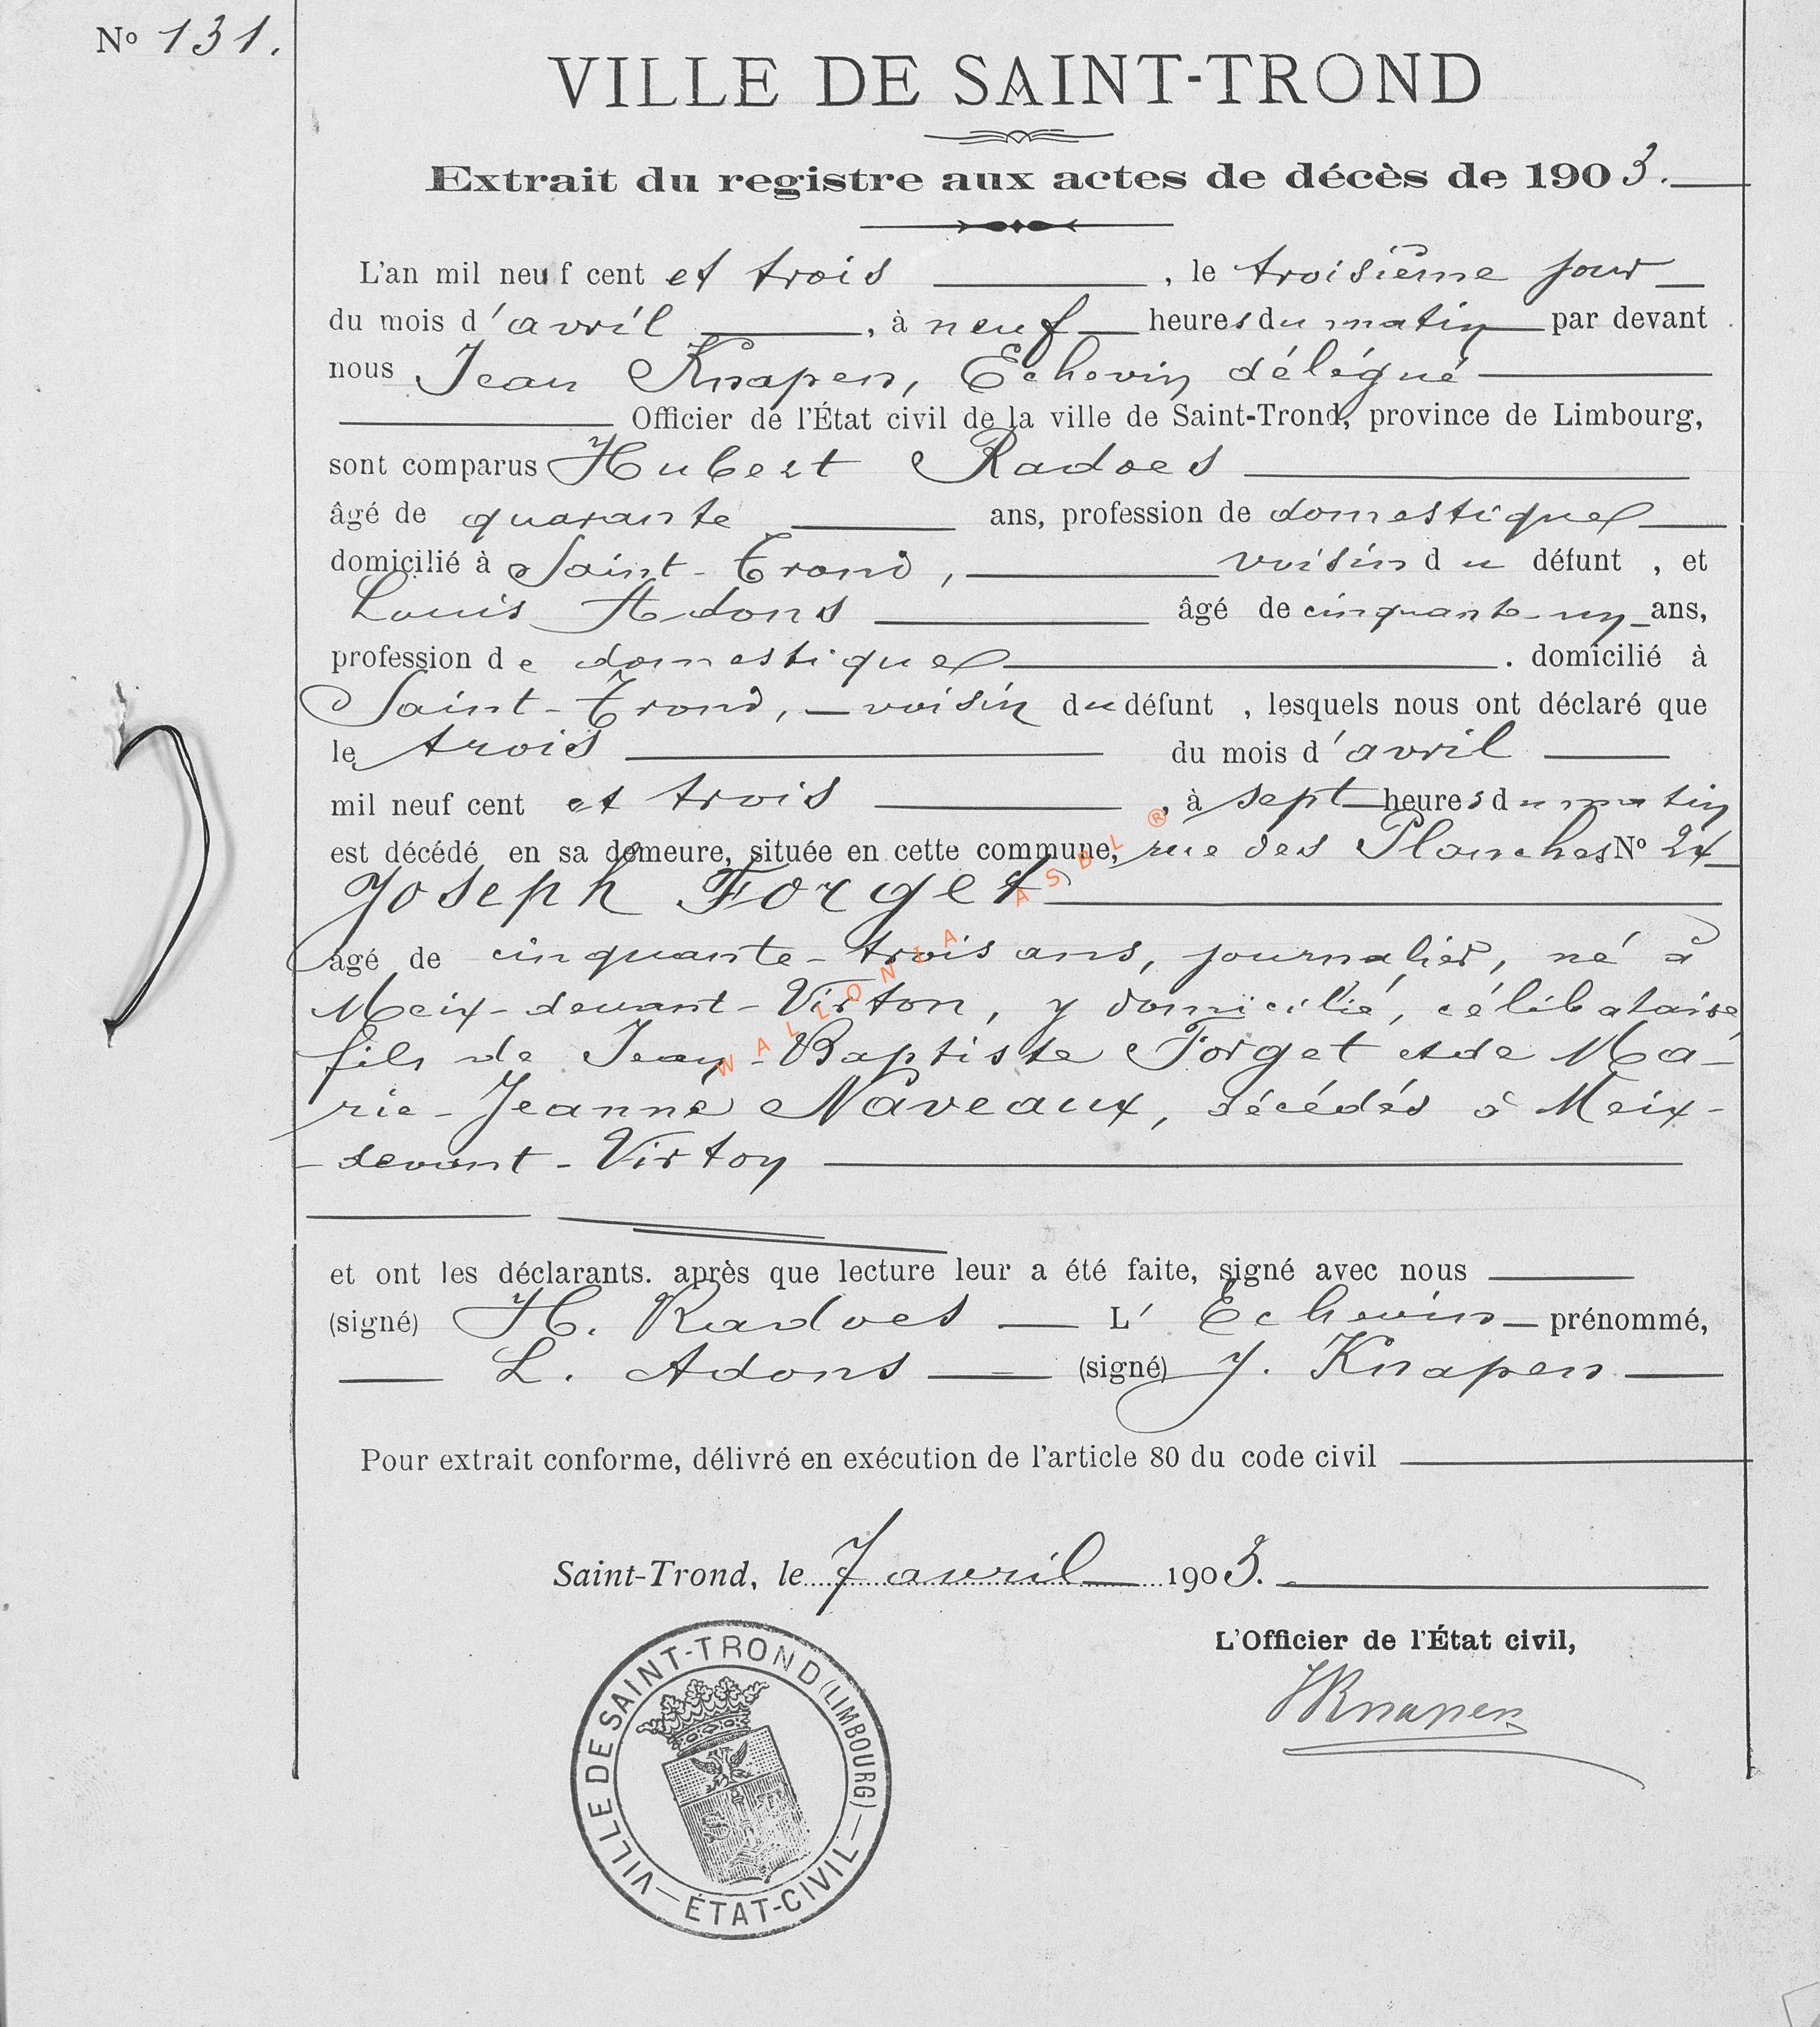 No 131.
VILLE DE SAINT-TROND
Extrait du registre aux actes de décès de 1903.
L'an mil neuf cent et trois, le troisième jour
du mois d'avril, à neuf heures du matin par devant
nous Jean Knapen, Echevin délégué
Officier de l'État civil de la ville de Saint-Trond, province de Limbourg,
sont comparus Hubert Radoes
âgé de quarante ans, profession de domestique
domicilié à Saint-Trond, voisin du défunt, et
Louis Adons âgé de cinquante-un ans,
profession de domestique. domicilié à
Saint-Trond, voisin du défunt, lesquels nous ont déclaré que
le trois du mois d'avril
mil neuf cent et trois, à sept heures du matin
est décédé en sa demeure, située en cette commune, rue des Planches No 24
Joseph Forget
âgé de cinquante-trois ans, journalier, né à
Meix-devant-Virton, y domicilié, célibataire,
fils de Jean-Baptiste Forget et de Ma-
rie-Jeanne Naveaux, décédés à Meix-
-devant-Virton
et ont les déclarants. après que lecture leur a été faite, signé avec nous
(signé) H. Radoes L'Echevin prénommé,
L. Adons (signé) J. Knapen
Pour extrait conforme, délivré en exécution de l'article 80 du code civil
Saint-Trond, le 7 avril 1903.
L'Officier de l'État civil,
JKnapen
VILLE DE SAINT-TROND (LIMBOURG) — ÉTAT-CIVIL —
S T
WALLONIA ASBL ®